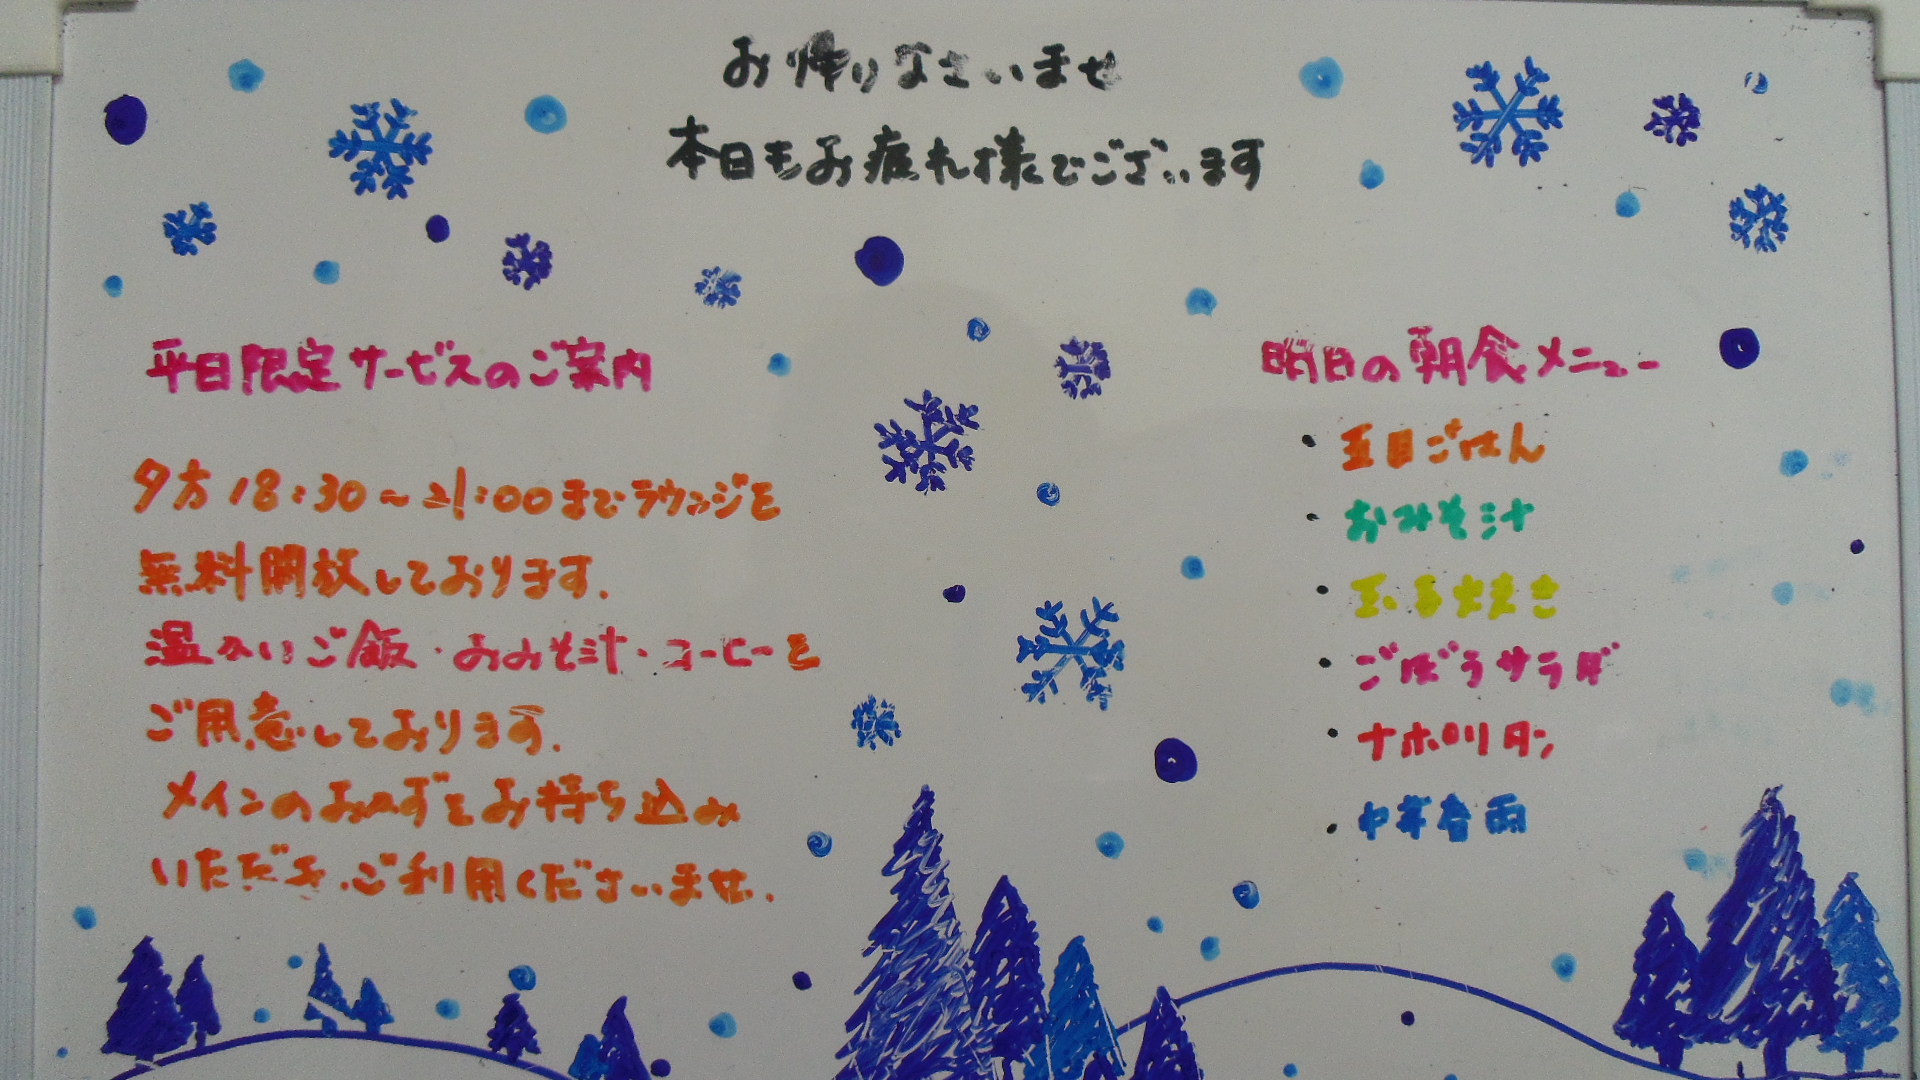 お帰りなさいませ
本日もお疲れ様でございます
平日限定サービスのご案内
夕方18:30～21:00までラウンジを
無料開放しております.
温かいご飯・おみそ汁・コーヒーを
ご用意しております.
メインのおかずをお持ち込み
いただき、ご利用くださいませ.
明日の朝食メニュー
・五目ごはん
・おみそ汁
・玉子焼き
・ごぼうサラダ
・ナポリタン
・中華春雨